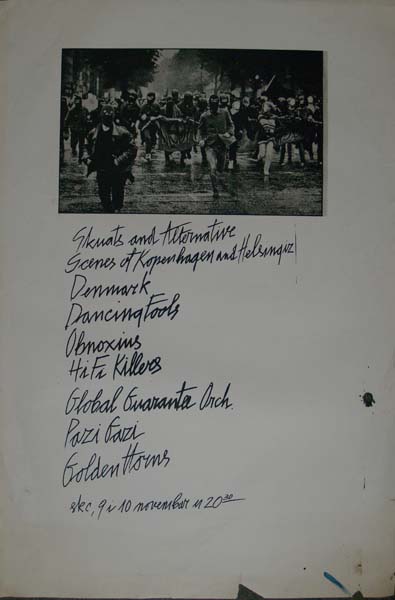 Skuats and Alternative
Scenes of Kopenhagen and Helsingiz
Denmark
Dancing Fools
Obnoxius
HiFi Killers
Global Guaranta Orch.
Pazi Gazi
Golden Horns
skc, 9 i 10 novembar u 20 30